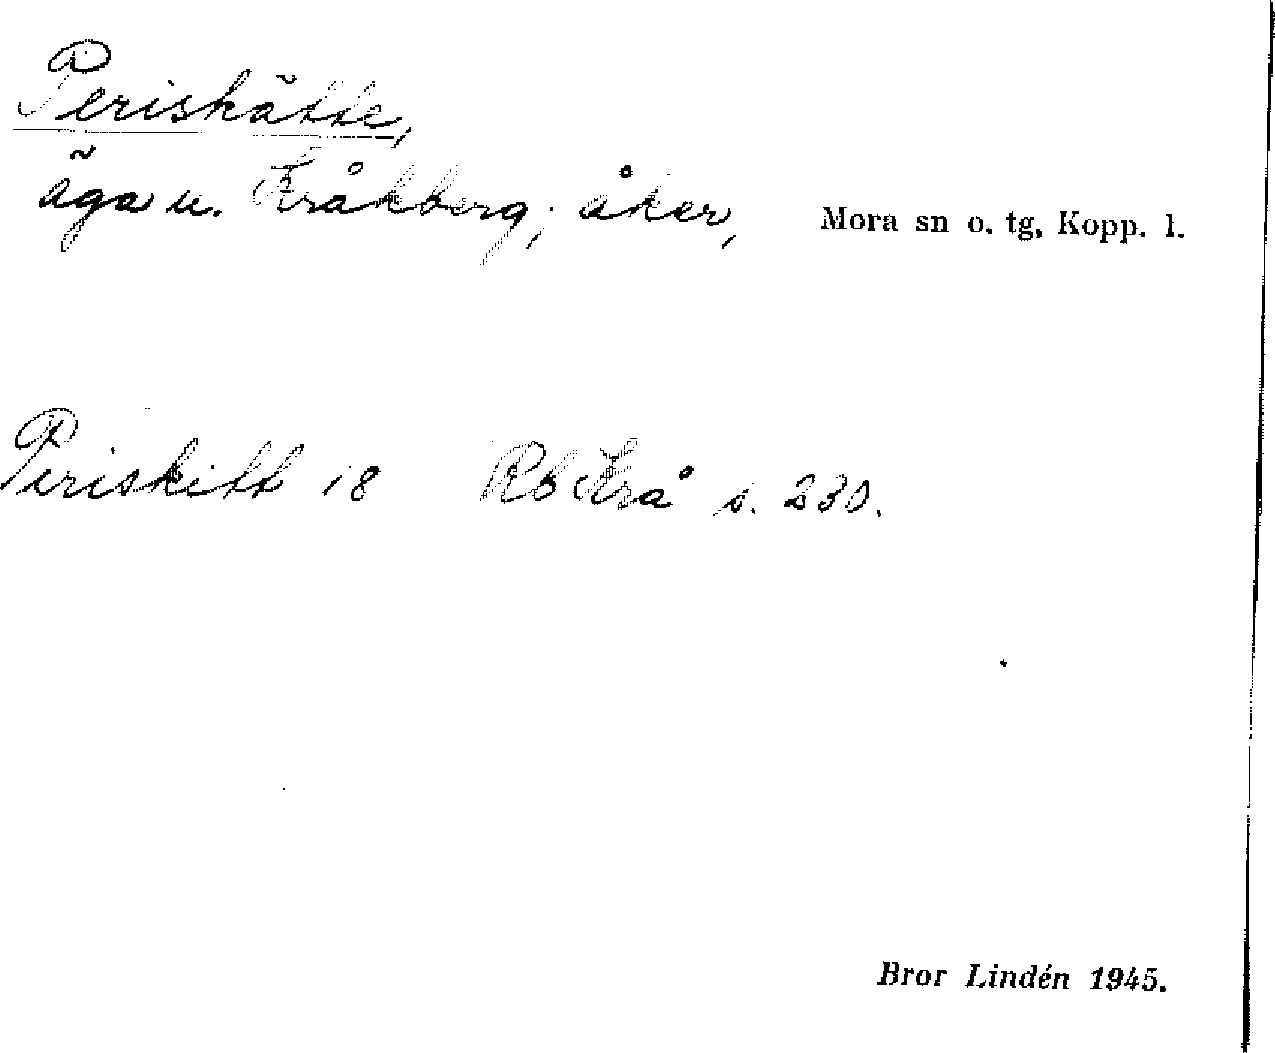 Periskätte,
äga u. Kråkberg; åker, Mora sn o. tg, Kopp. l.
Periskitt 18 Rb Krå s. 230.
Bror Lindén 1945.